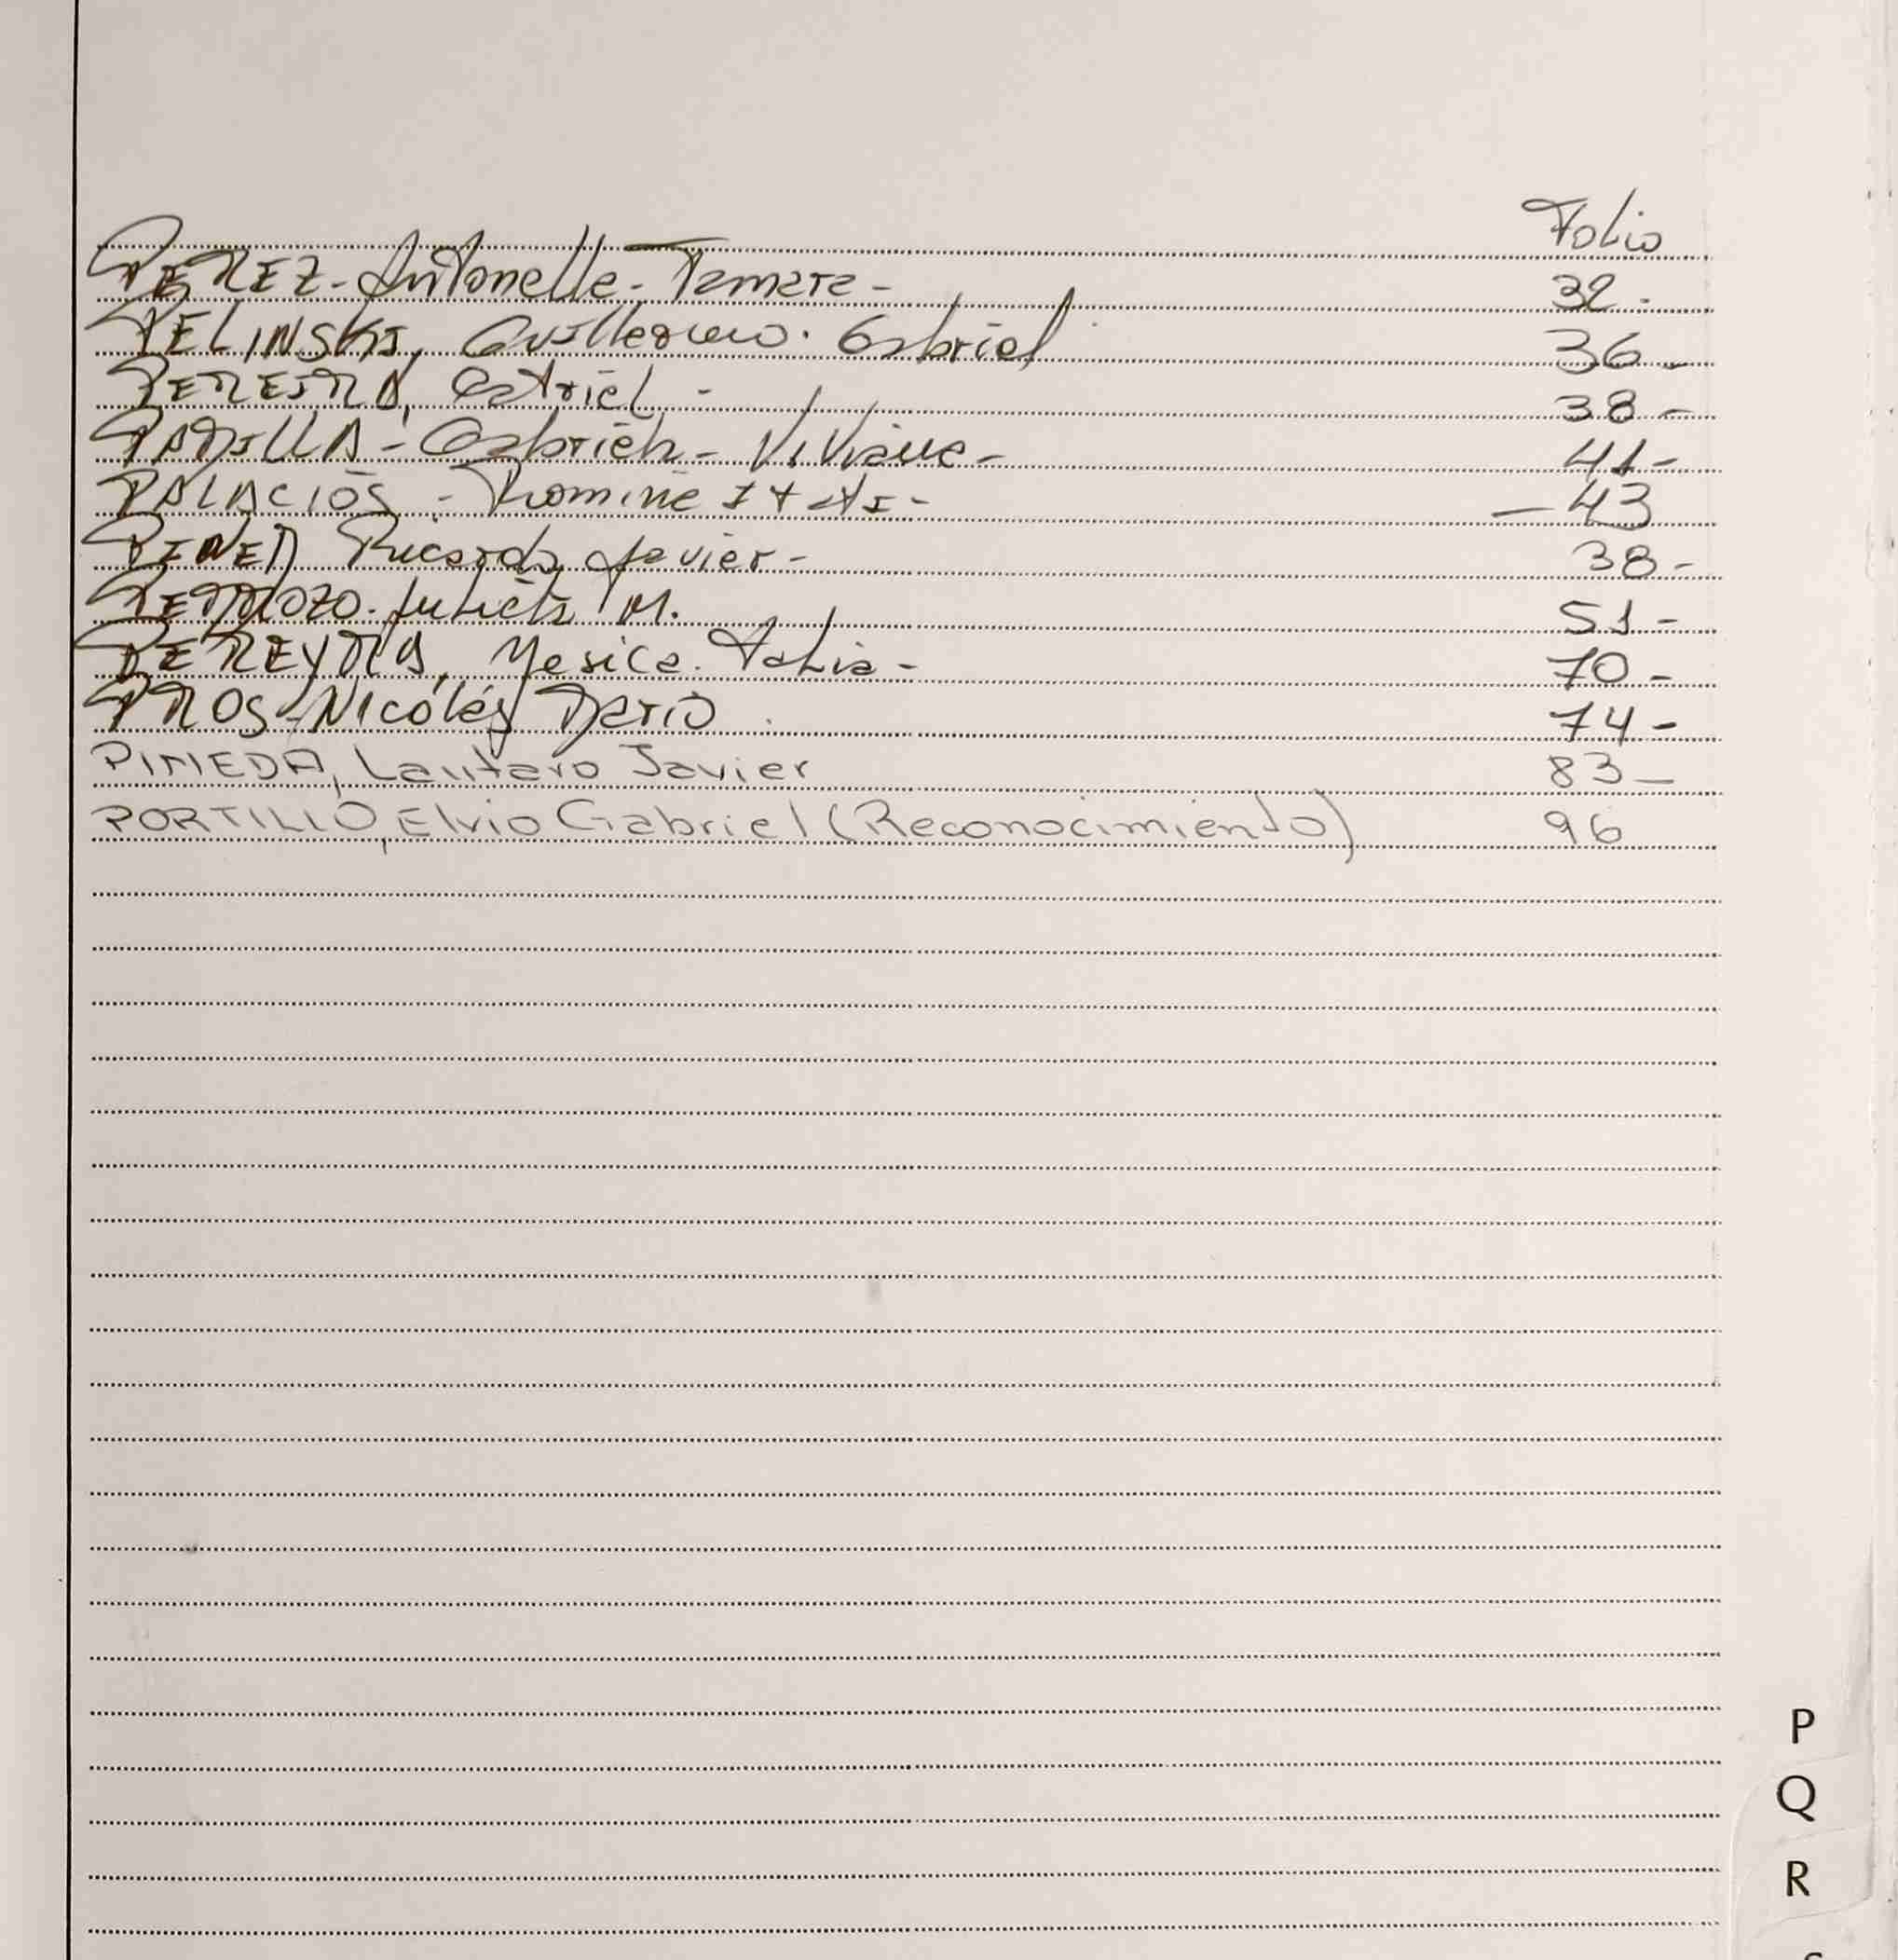 Folio
PEREZ - Antonella - Tamara - 32 -
PELINSKI, Guillermo. Gabriel 36 -
PEREIRA, Gabriel - 38 -
PADILLA - Gabriela - Viviana - 41 -
PALACIOS - Romina - 43
Ricardo Javier - 38 -
Julieta M. 51 -
PEREYRA, Yesica. 70 -
PROS - Nicolás Dario 74 -
PINEDA, Lautaro Javier 83 -
PORTILLO, Elvio Gabriel (Reconocimiento) 96
P
Q
R